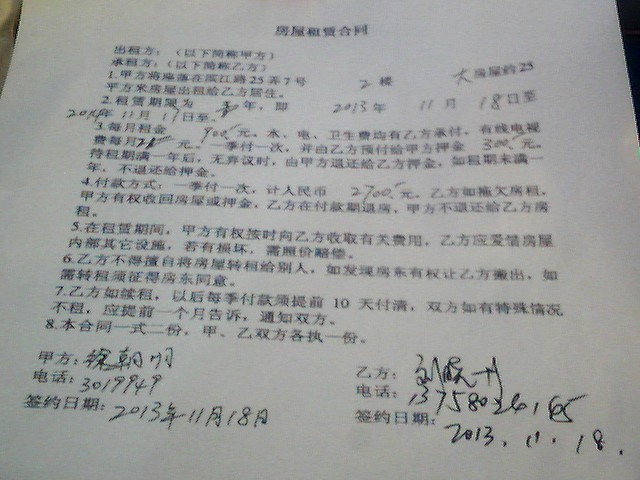 房屋租赁合同
出租方：（以下简称甲方）
承租方：（以下简称乙方）
1.甲方将座落在滨江路25弄7号 2楼 大房屋约25
平方米房屋出租给乙方居住。
2.租赁期限为 年，即 2013年 11月 18日至
2014年11月17日至。
3.每月租金 900元。水、电、卫生费均有乙方承付，有线电视
费每月 元。一季付一次，并由乙方预付给甲方押金 300元。
待租期满一年后，无弃议时，由甲方退还给乙方押金，如租期未满一
年，不退还给押金。
4.付款方式：一季付一次，计人民币 2700元。乙方如拖欠房租，
甲方有权收回房屋或押金，乙方在付款期退房，甲方不退还给乙方房
租。
5.在租赁期间，甲方有权按时向乙方收取有关费用，乙方应爱惜房屋
内部其它设施，若有损坏，需照价赔偿。
6.乙方不得擅自将房屋转租给别人，如发现房东有权让乙方搬出，如
需转租须征得房东同意。
7.乙方如续租，以后每季付款须提前 10 天付清，双方如有特殊情况
不租，应提前一个月告诉，通知双方。
8.本合同一式二份，甲、乙双方各执一份。
甲方：
电话：3019949
签约日期：2013年11月18日
乙方：
电话：13758026165
签约日期：2013.11.18.